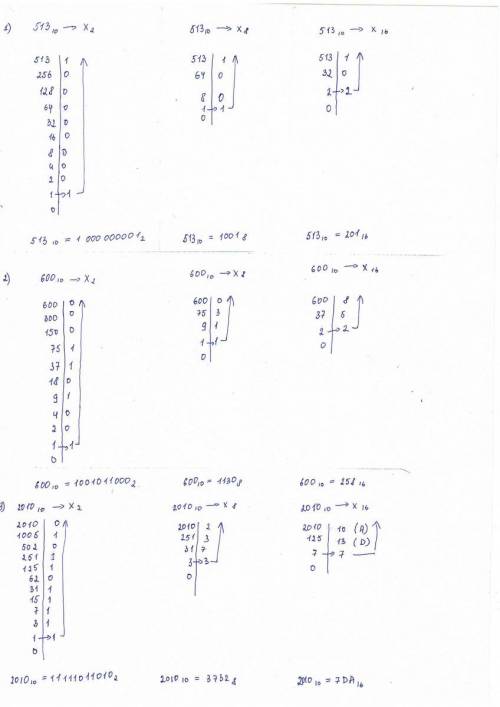 1) 513₁₀ → X₂
513 1
256 0
128 0
64 0
32 0
16 0
8 0
4 0
2 0
1 → 1
0
513₁₀ = 1000000001₂
513₁₀ → X₈
513 1
64 0
8 0
1 → 1
0
513₁₀ = 1001₈
513₁₀ → X₁₆
513 1
32 0
2 → 2
0
513₁₀ = 201₁₆
2) 600₁₀ → X₂
600 0
300 0
150 0
75 1
37 1
18 0
9 1
4 0
2 0
1 → 1
0
600₁₀ = 1001011000₂
600₁₀ → X₈
600 0
75 3
9 1
1 → 1
0
600₁₀ = 1130₈
600₁₀ → X₁₆
600 8
37 5
2 → 2
0
600₁₀ = 258₁₆
3) 2010₁₀ → X₂
2010 0
1005 1
502 0
251 1
125 1
62 0
31 1
15 1
7 1
3 1
1 → 1
0
2010₁₀ = 11111011010₂
2010₁₀ → X₈
2010 2
251 3
31 7
3 → 3
0
2010₁₀ = 3732₈
2010₁₀ → X₁₆
2010 10 (A)
125 13 (D)
7 → 7
0
2010₁₀ = 7DA₁₆